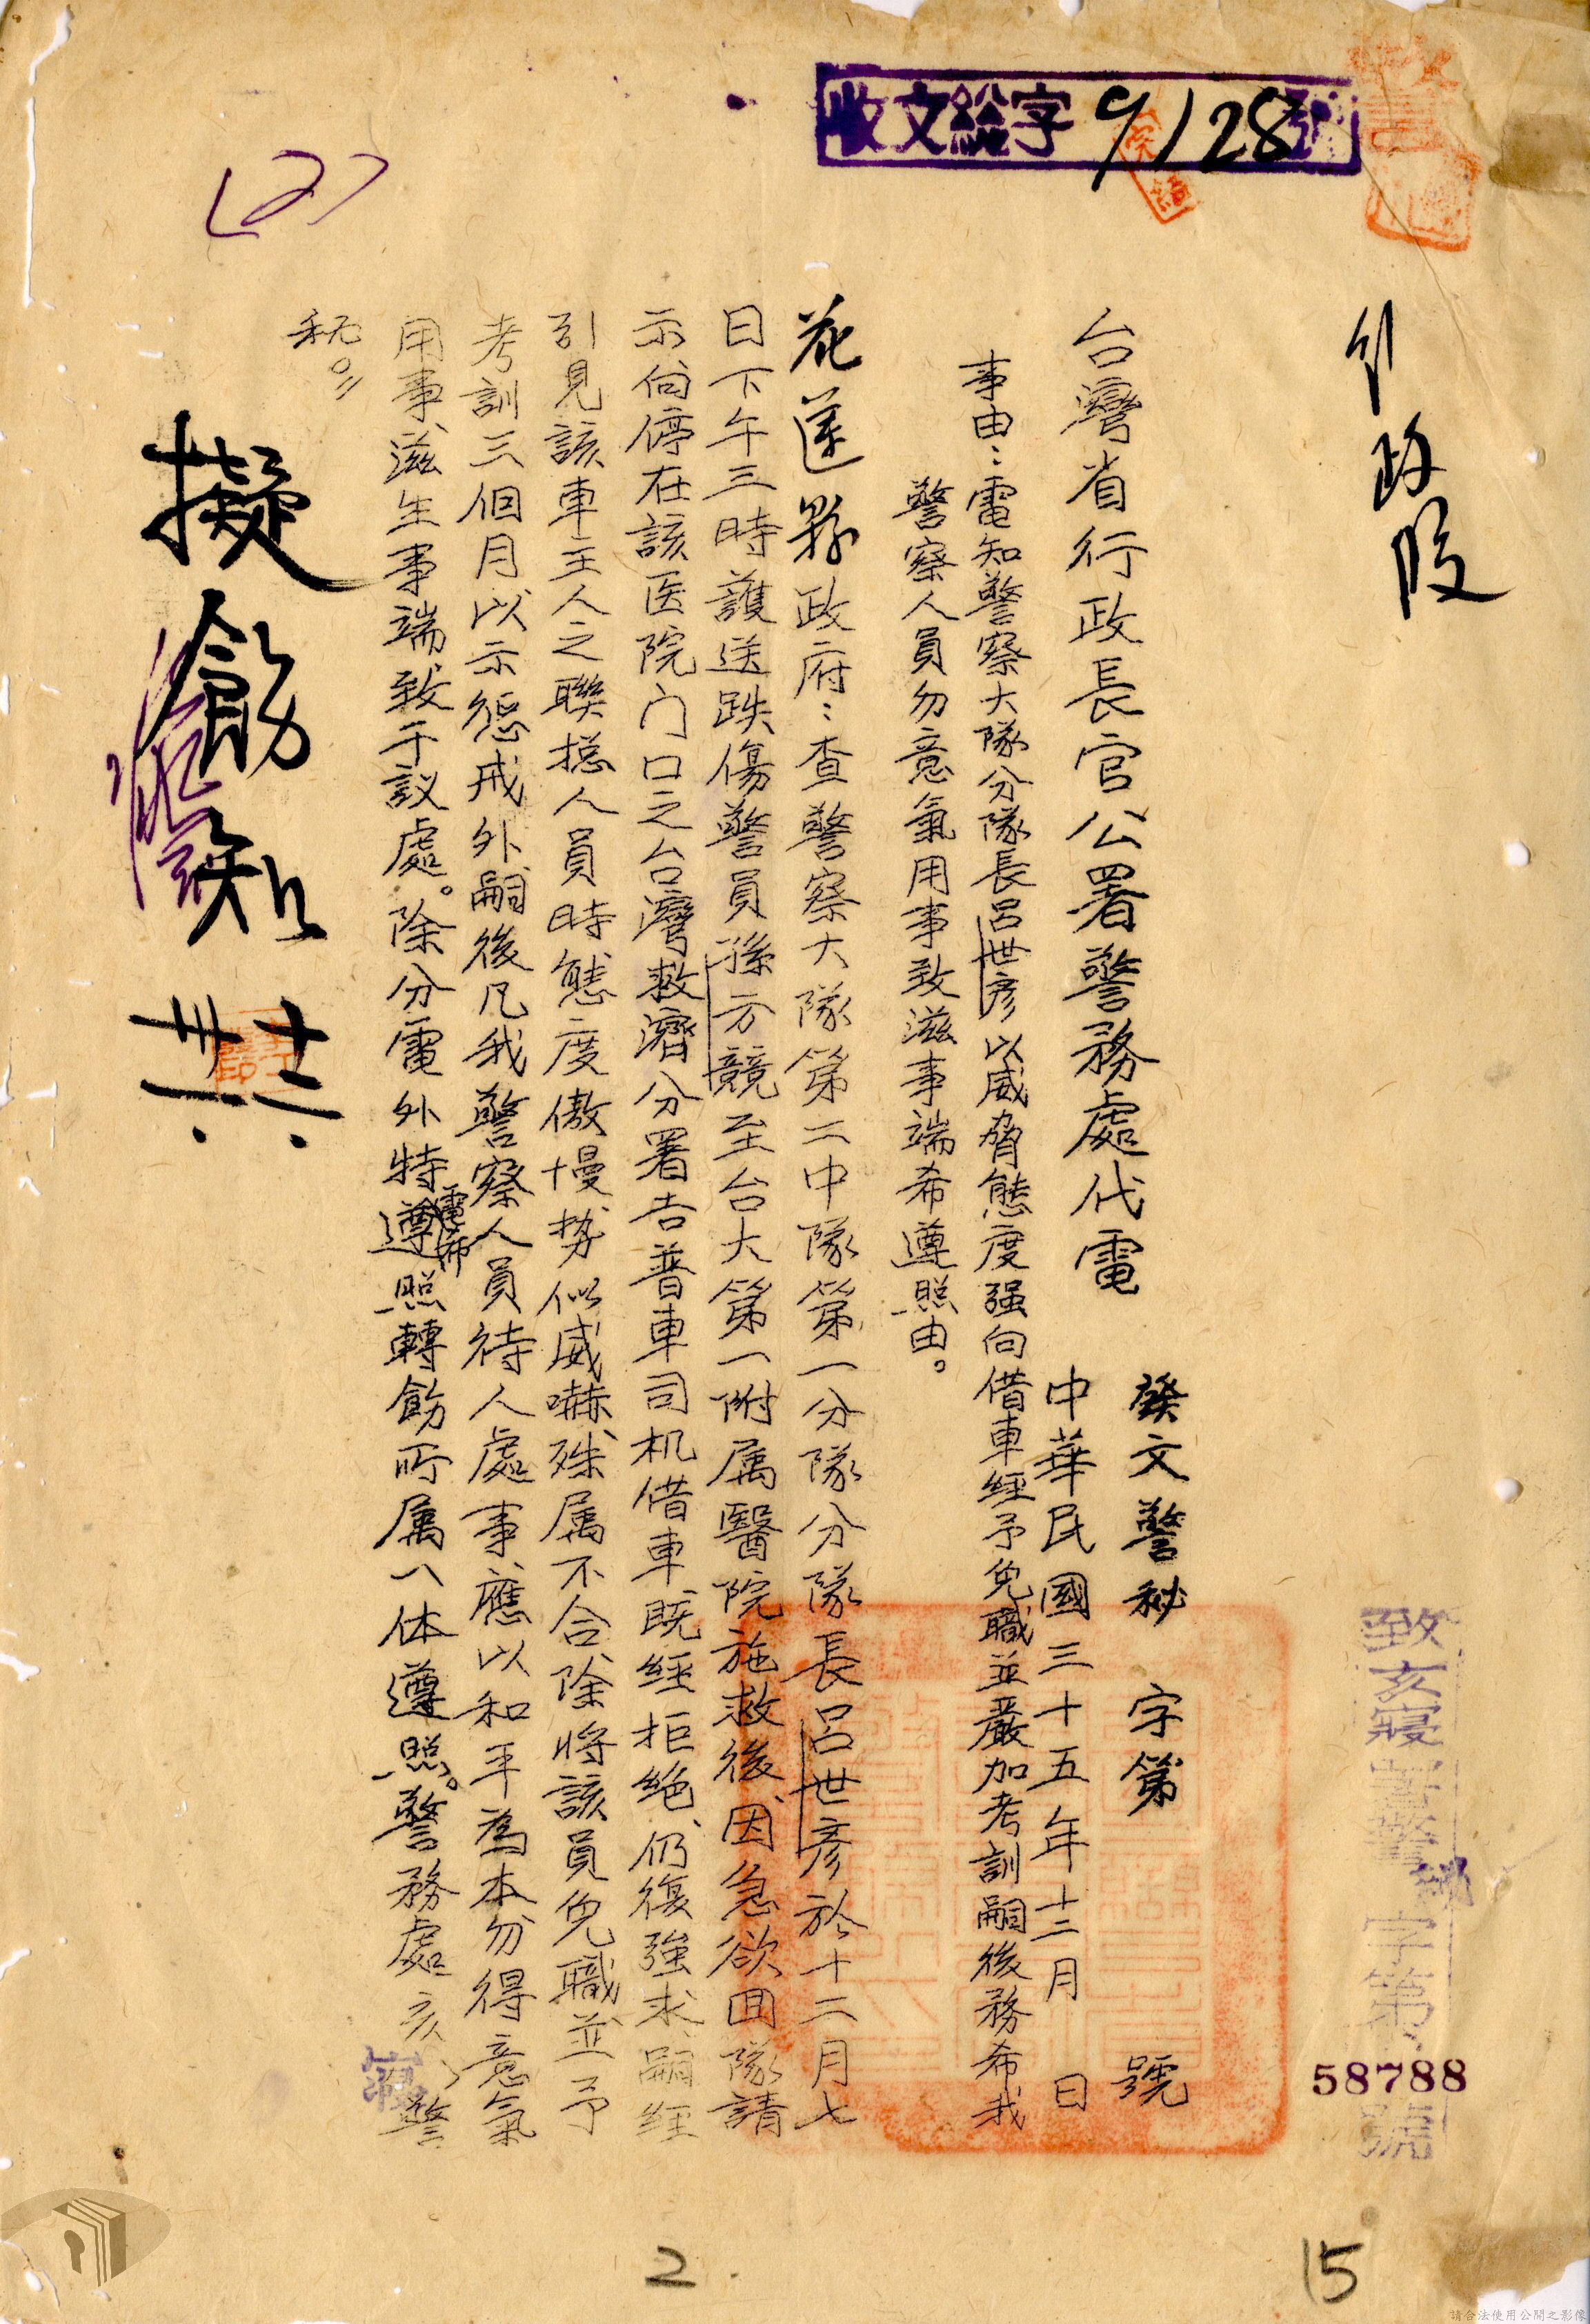 收文總字9128號
行政股
致亥寢 警秘 字第58788號
台灣省行政長官公署警務處代電
發文警秘 字第 號
中華民國三十五年十二月 日
事由:電知警察大隊分隊長呂世彥以威脅態度强向借車經予免職並嚴加考訓嗣後務希我
警察人員勿意氣用事致滋事端希遵照由。
花蓮縣政府:查警察大隊第二中隊第一分隊分隊長呂世彥於十二月七
日下午三時護送跌傷警員孫方競至台大第一附属醫院施救後因急欲囬隊請
示向停在該医院门口之台灣救濟分署吉普車司机借車既經拒绝仍復強求嗣經
引見該車主人之聯捴人員時態度傲慢势似威嚇殊属不合除將該員免職並予
考訓三個月以示懲戒外嗣後凡我警察人員待人處事應以和平為本勿得意氣
用事滋生事端致干議處。除分電外特電希遵照轉飭所属一体遵照。警務處亥寢警
秘。
擬飭知
十二 卅一
(2)
2
15
請合法使用公開之影像